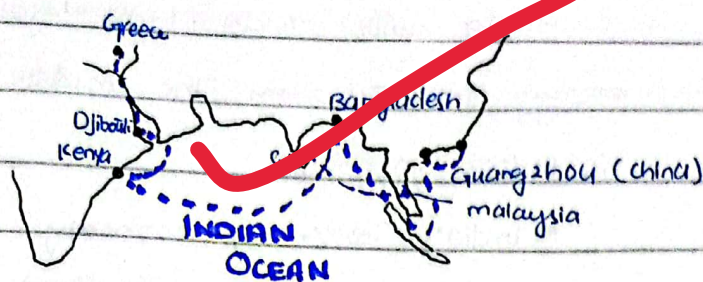 Greece
Djibouti
Kenya
Bangladesh
Guangzhou (China)
malaysia
INDIAN
OCEAN